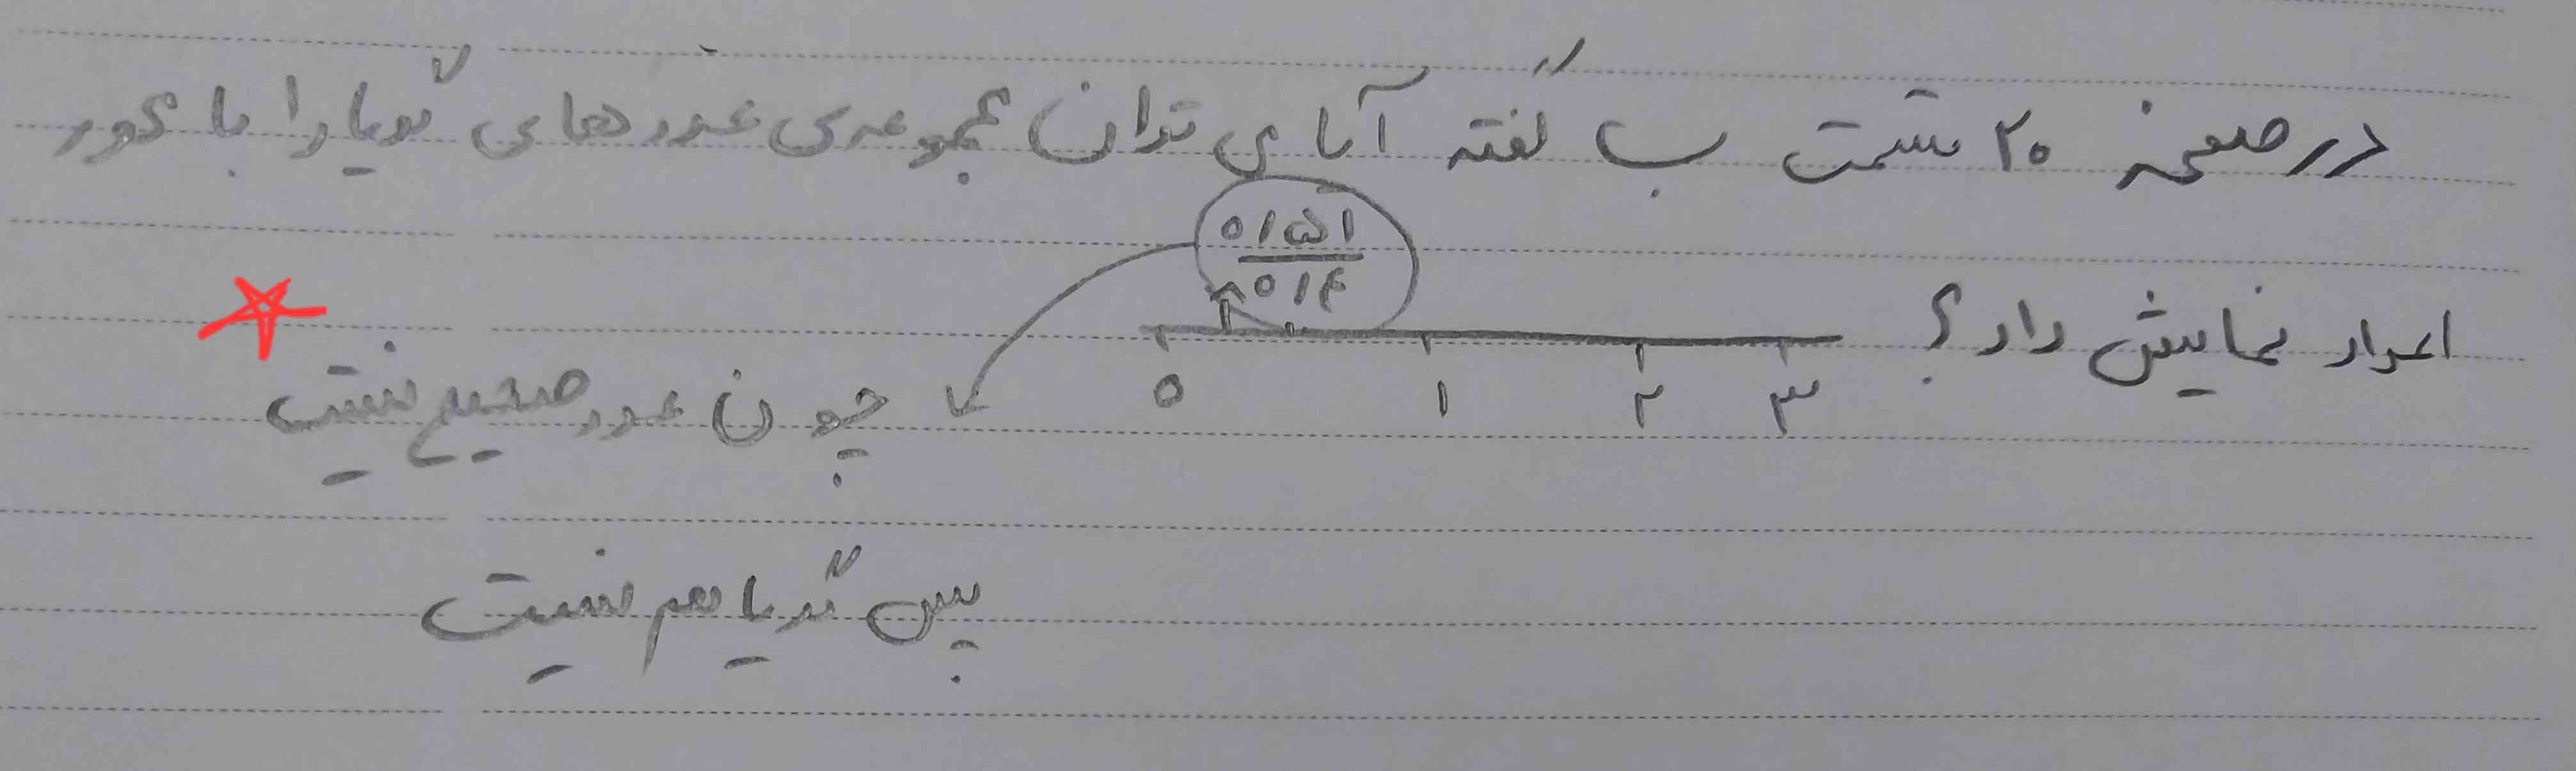 در صفحه ۲۰ قسمت ب گفته آیا می توان مجموعه ی عددهای گویا را با محور
اعداد نمایش داد؟
۰/۵۱
۰/۴
۰ ۱ ۲ ۳
چون عدد صحیح نیست
پس گویا هم نیست